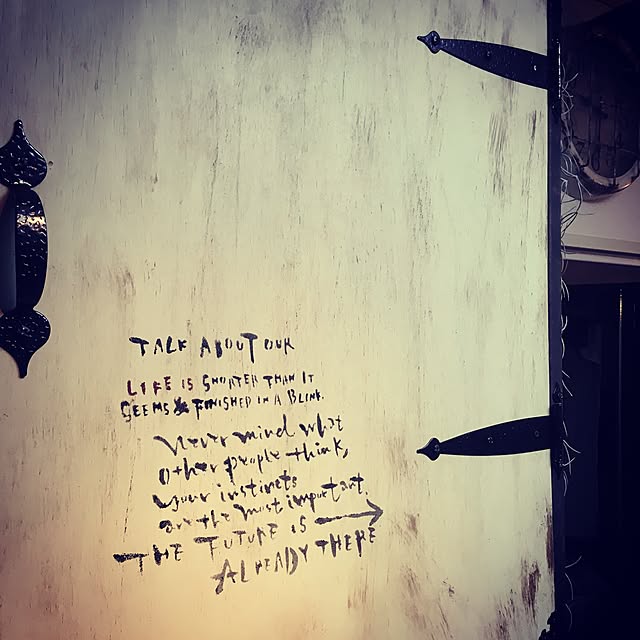 TALK ABOUT OUR
LIFE IS SHORTER THAN IT
SEEMS & FINISHED IN A BLINK.
Never mind what
other people think,
your instincts
are the most important.
THE FUTURE IS →
ALREADY THERE